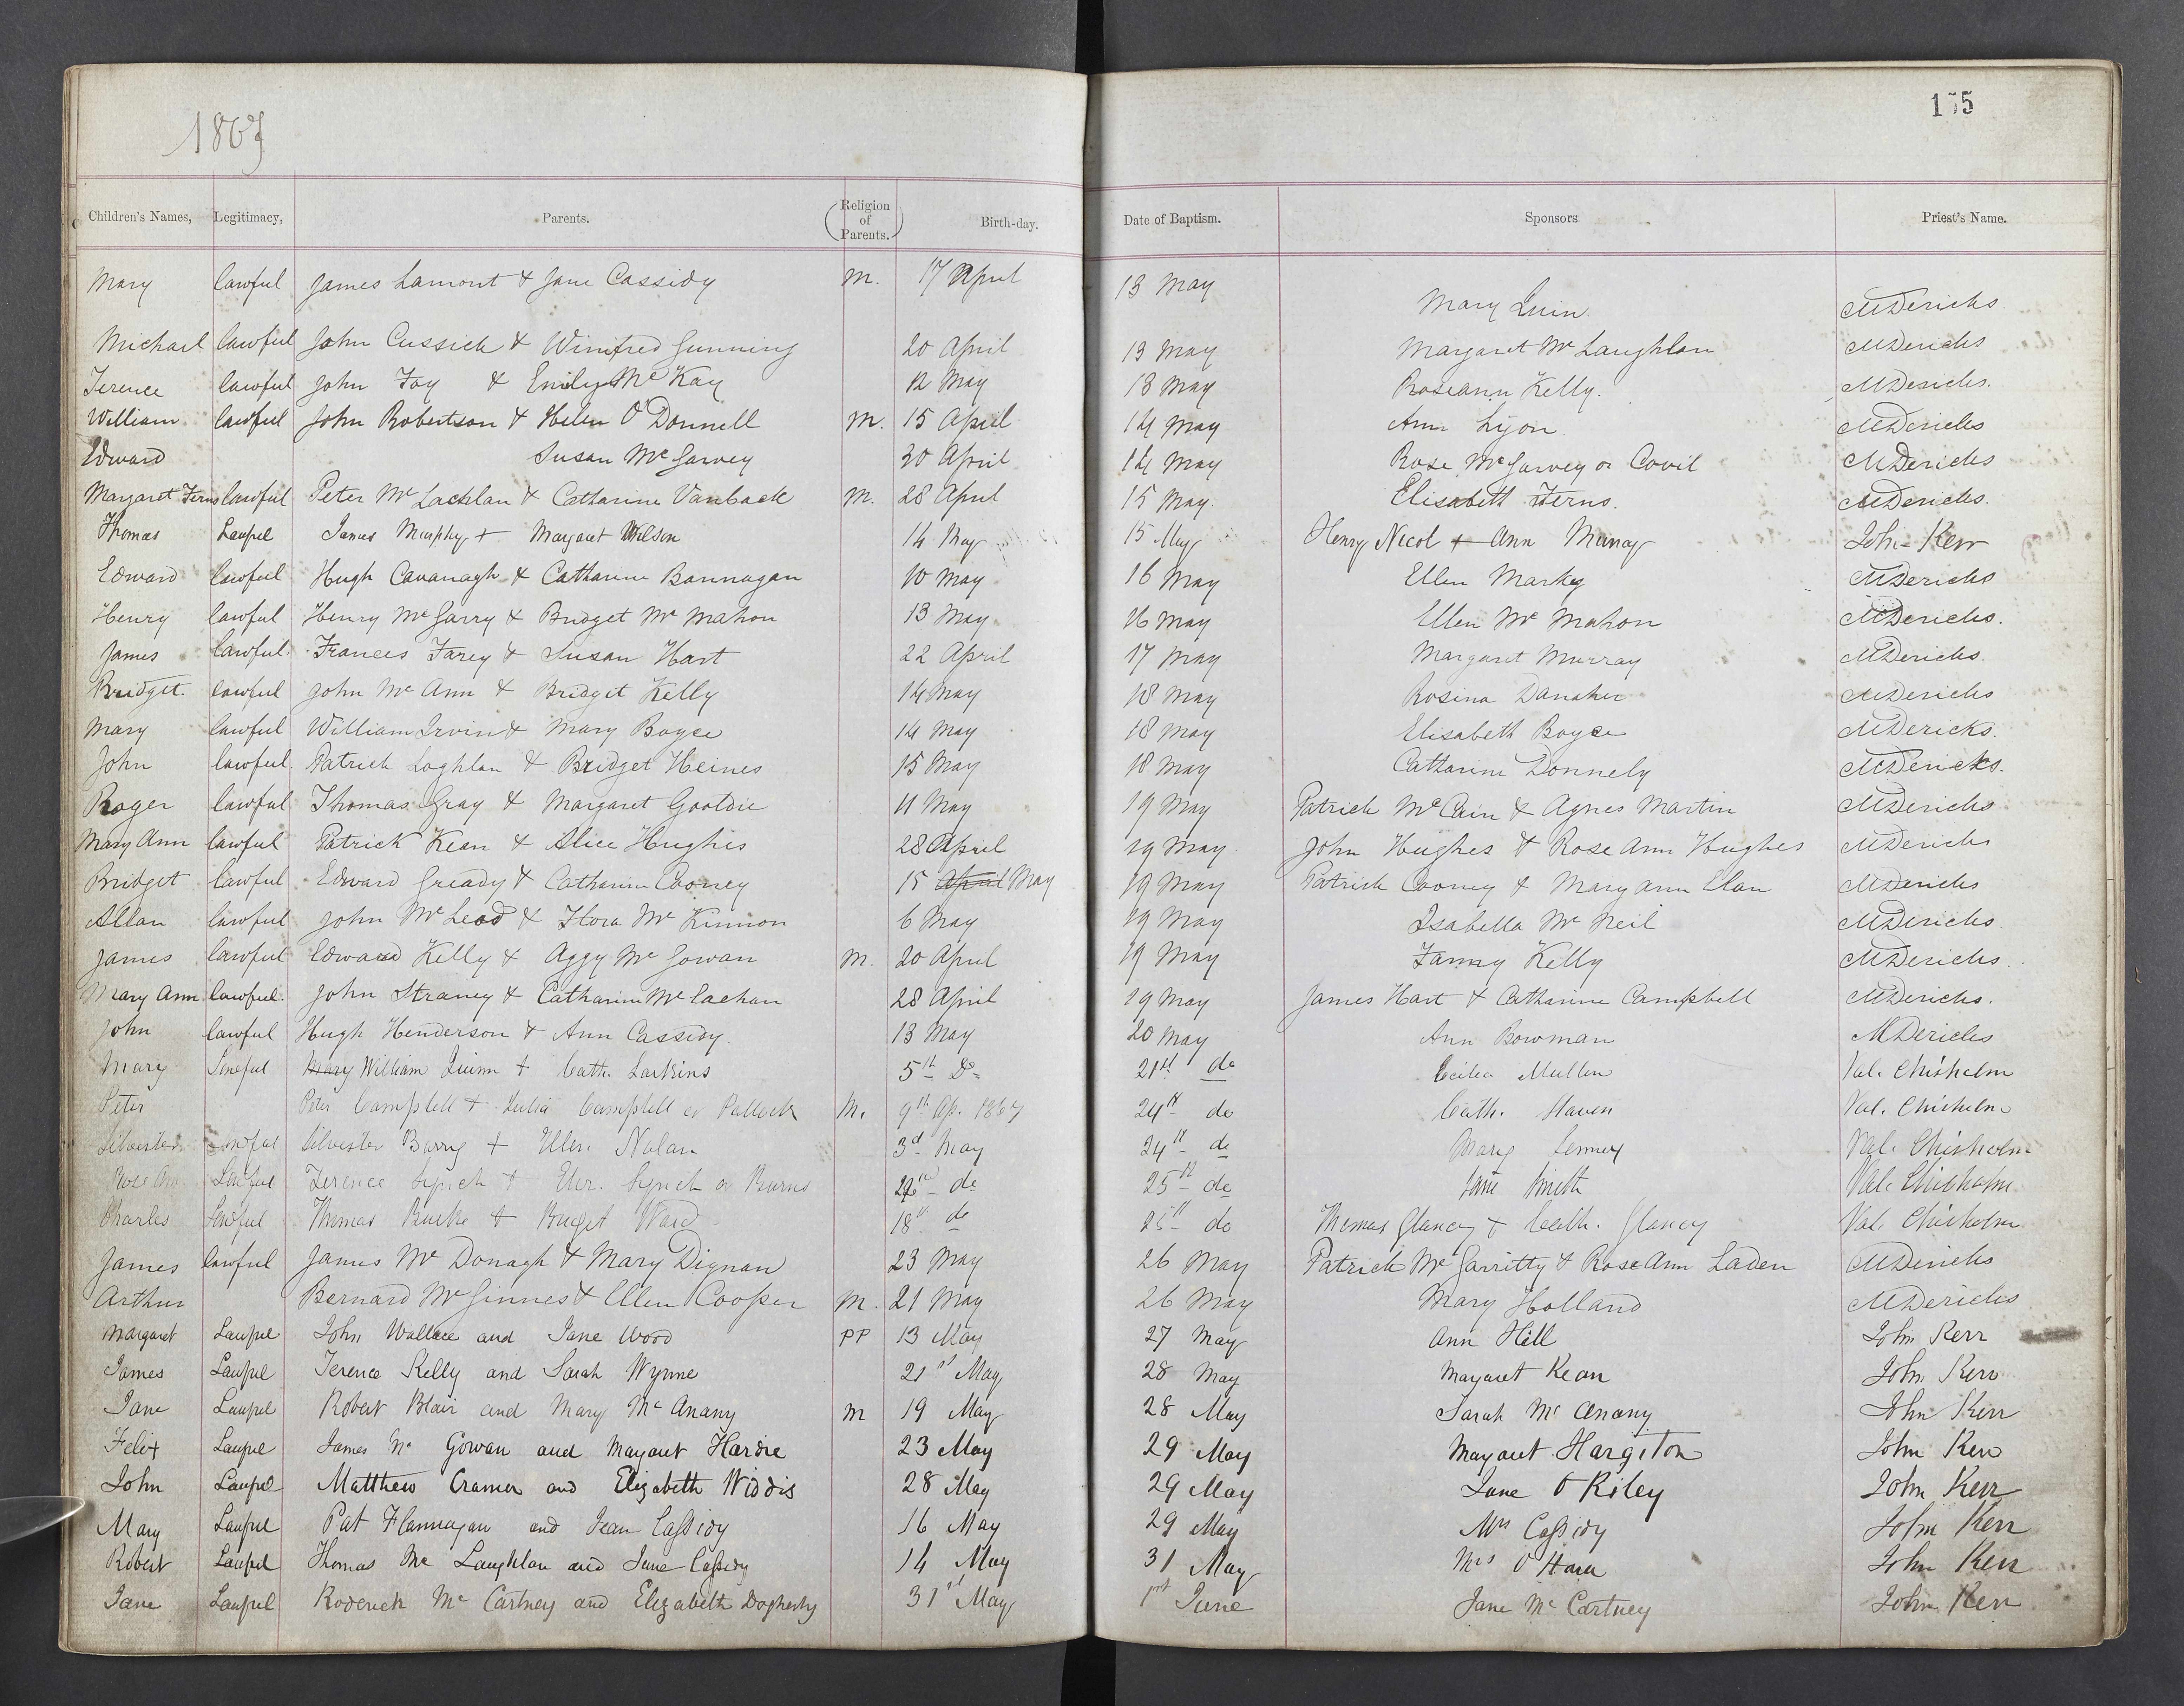 1867
155
Children's Names, Legitimacy, Parents. (Religion of Parents.) Birth-day. Date of Baptism. Sponsors Priest's Name.
Mary lawful James Lamont & Jane Cassidy M. 17 April 13 May Mary Quin. MDericks.
Michael lawful John Cussick & Winifred Gunning 20 April 13 May Margaret Mc Laughlan MDericks
Terence lawful John Foy & Emily Mc Kay 12 May 13 May Roseann Kelly. MDericks.
William lawful John Robertson & Helen O'Donnell M. 15 April 14 May Ann Lyon MDericks
Edward Susan McGarvey 30 April 14 May Rose McGarvey or Covil MDericks
Margaret Ferns lawful Peter Mc Lachlan & Catharine Vanback M. 28 April 15 May Elisabeth Ferns. MDericks.
Thomas Lawful James Murphy + Margaret Wilson 14 May 15 May Henry Nicol + Ann Murray John Kerr
Edward lawful Hugh Cavanagh & Catharine Bannagan 10 May 16 May Ellen Markey MDericks
Henry lawful Henry McGarry & Bridget Mc Mahon 13 May 16 May Ellen Mc Mahon MDericks.
James lawful. Frances Farey & Susan Hart 22 April 17 May Margaret Murray MDericks.
Bridget. lawful John Mc Ann & Bridget Kelly 14 May 18 May Rosina Danaher MDericks
Mary lawful William Irvin & Mary Boyce 14 May 18 May Elisabeth Boyce MDericks.
John lawful Patrick Loghlan & Bridget Heines 15 May 18 May Catharine Donnely MDericks.
Roger lawful Thomas Gray & Margaret Gooldie 11 May 19 May Patrick McCain & Agnes Martin MDericks
Mary Ann lawful Patrick Kean & Alice Hughes 28 April 19 May John Hughes & Rose Ann Hughes MDericks
Bridget lawful Edward Gready & Catharine Cooney 15 April May 19 May Patrick Cooney & Mary Ann Elan MDericks
Allan lawful John McLeod & Flora Mc Kinnon 6 May 19 May Isabella Mc Neil MDericks
James lawful Edward Kelly & Aggy McGowan M. 20 April 19 May Fanny Kelly MDericks.
Mary Ann lawful. John Straney & Catharine Mc lachan 28 April 19 May James Hart & Catharine Campbell MDericks.
John lawful Hugh Henderson & Ann Cassidy. 13 May 20 May Ann Bowman MDericks
Mary Lawful Mary William Quinn + Cath. Larkins 5th Do 21st do Cecilia Mullen Val. Chisholm
Peter Peter Campbell + Julia Campbell or Pollock M. 9th Ap. 1867 24th do Cath. Haven Val. Chisholm
Silvester Lawful Silvester Barry + Ellen Nolan 3d May 24th do Mary Lennox Val. Chisholm
Rose Ann Lawful Terence Lynch + Elir. Lynch or Burns do 25th do Jane Smith Val. Chisholm
Charles Lawful Thomas Burke + Bridget Ward 18th do 25th do Thomas Glancey + Cath. Glancy Val. Chisholm
James lawful James Mc Donagh & Mary Dignan 23 May 26 May Patrick McGarritty & Rose Ann Laden MDericks
Arthur Bernard McGinnes & Ellen Cooper M. 21 May 26 May Mary Holland MDericks
Margaret Lawful John Wallace and Jane Wood PP 13 May 27 May Ann Hill John Kerr
James Lawful Terence Kelly and Sarah Wynne 21st May 28 May Margaret Kean John Kerr
Jane Lawful Robert Blair and Mary Mc Anany M 19 May 28 May Sarah Mc Anany John Kerr
Felix Lawful James Mc Gowan and Margaret Hardie 23 May 29 May Margaret Hargiton John Kerr
John Lawful Matthew Cramer and Elizabeth Widdis 28 May 29 May Jane O Riley John Kerr
Mary Lawful Pat Flannagan and Jean Cassidy 16 May 29 May Mrs Cassidy John Kerr
Robert Lawful Thomas Mc Laughlan and Jane Cassidy 14 May 31 May Mrs O Hara John Kerr
Jane Lawful Roderick Mc Cartney and Elizabeth Dogherty 31st May 1st June Jane Mc Cartney John Kerr